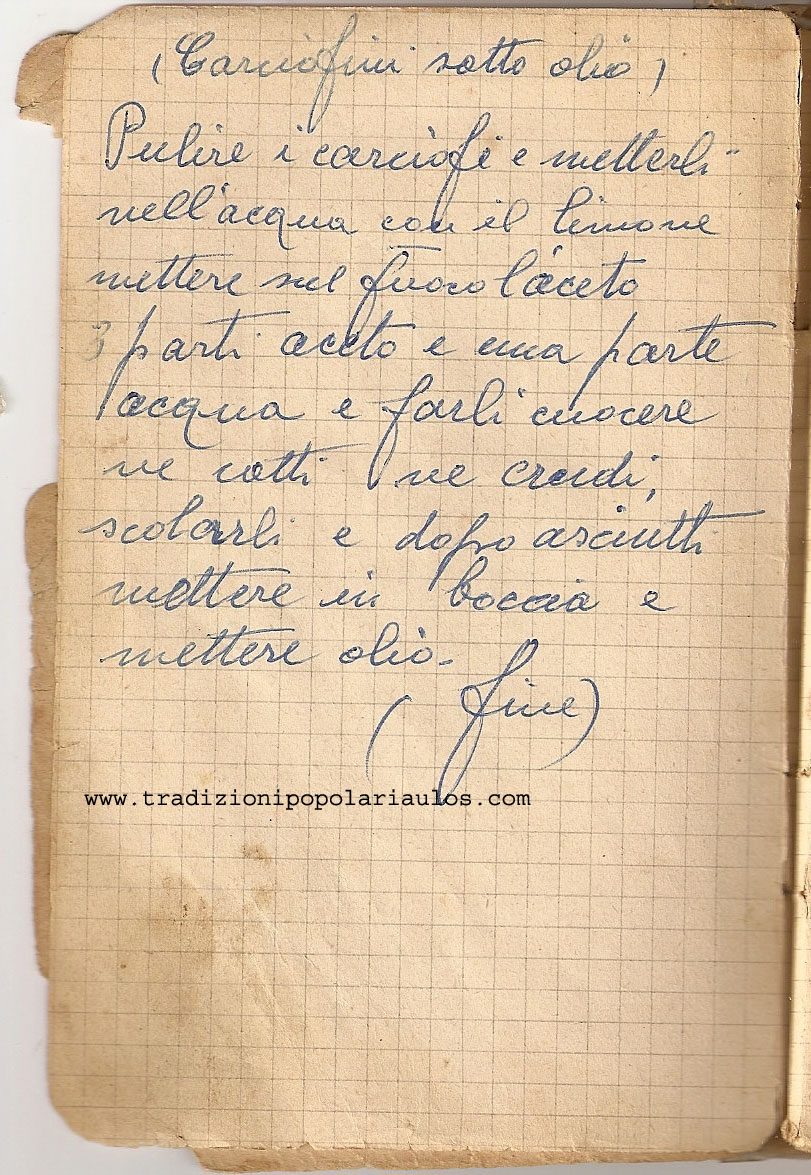 (Carciofini sotto olio)
Pulire i carciofi e metterli
nell'acqua con il limone
mettere sul fuoco l'aceto
3 parti aceto e una parte
acqua e farli cuocere
ne cotti ne crudi,
scolarli e dopo asciutti
mettere in boccia e
mettere olio.
(fine)
www.tradizionipopolariaulos.com